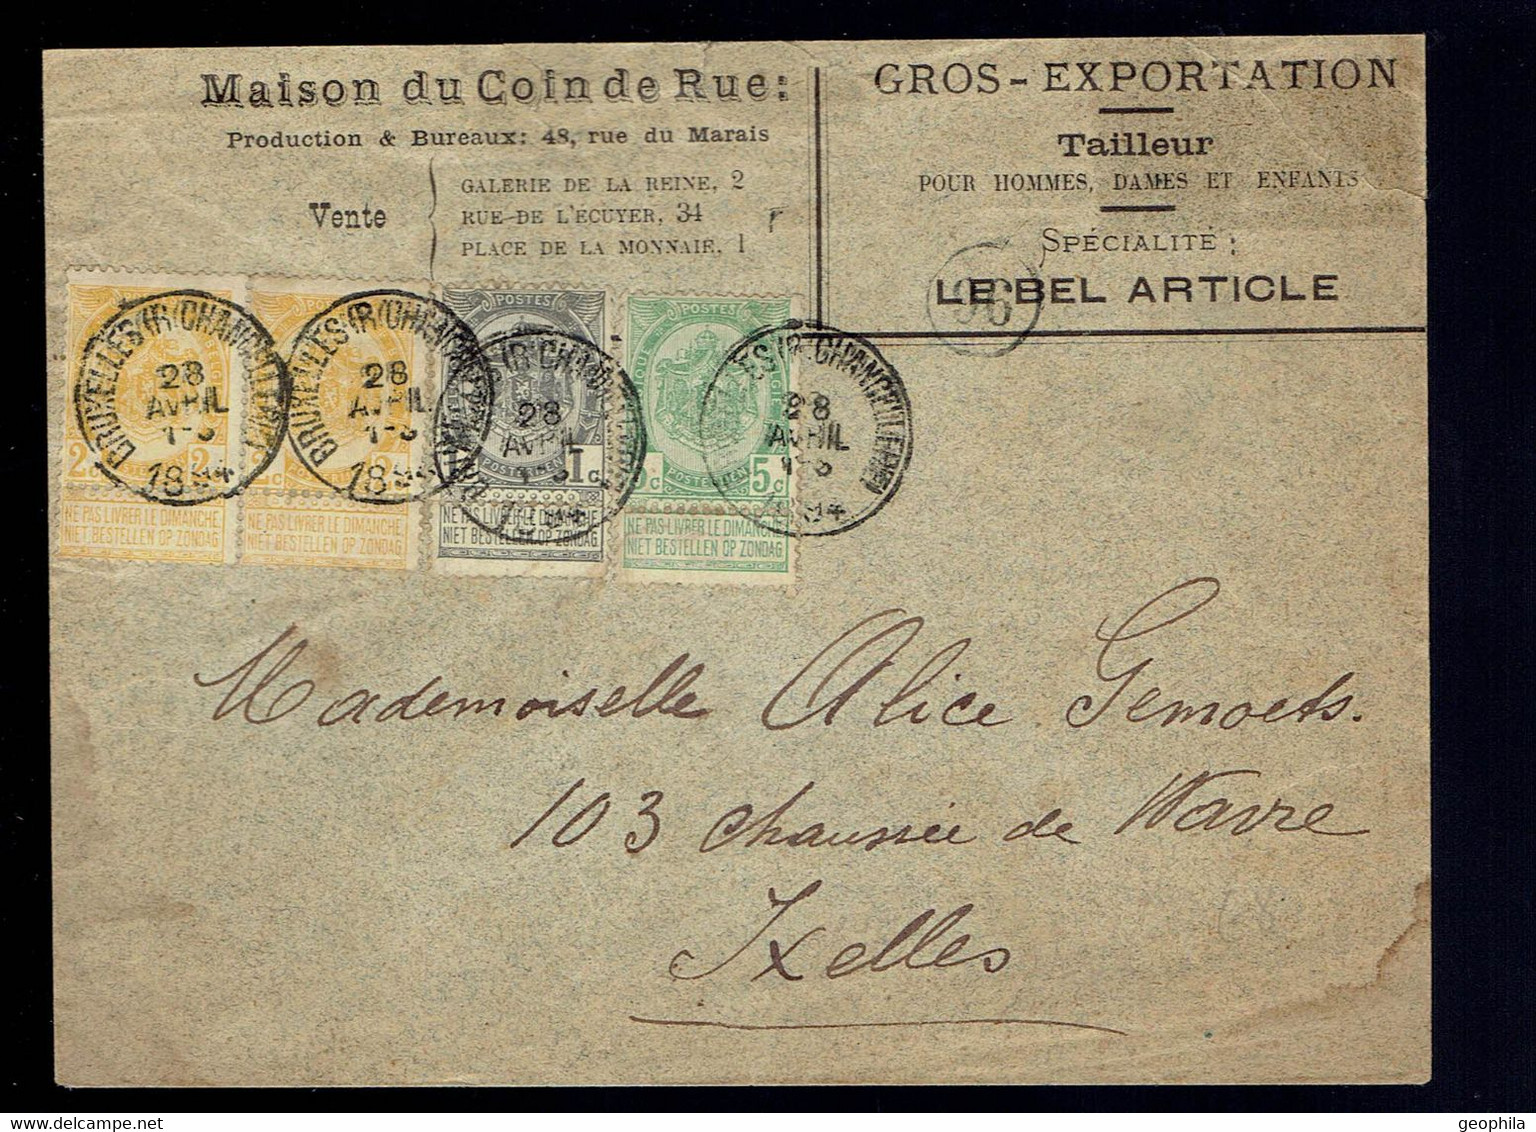 Maison du Coin de Rue:
Production & Bureaux: 48, rue du Marais
Vente
GALERIE DE LA REINE, 2
RUE DE L'ÉCUYER, 34
PLACE DE LA MONNAIE, 1
GROS-EXPORTATION
Tailleur
POUR HOMMES, DAMES ET ENFANTS
SPÉCIALITÉ :
LE BEL ARTICLE
96
BRUXELLES (R/CHANCELLERIE)
28
AVRIL
1894
BRUXELLES (R/CHANCELLERIE)
28
AVRIL
POSTES
28
AVRIL
1 c
POSTES
28
AVRIL
5 c
NE PAS LIVRER LE DIMANCHE
NIET BESTELLEN OP ZONDAG
NE PAS LIVRER LE DIMANCHE
NIET BESTELLEN OP ZONDAG
NE PAS LIVRER LE DIMANCHE
NIET BESTELLEN OP ZONDAG
NE PAS LIVRER LE DIMANCHE
NIET BESTELLEN OP ZONDAG
Mademoiselle Alice Gemoets.
103 chaussée de Wavre
Ixelles
68
geophila